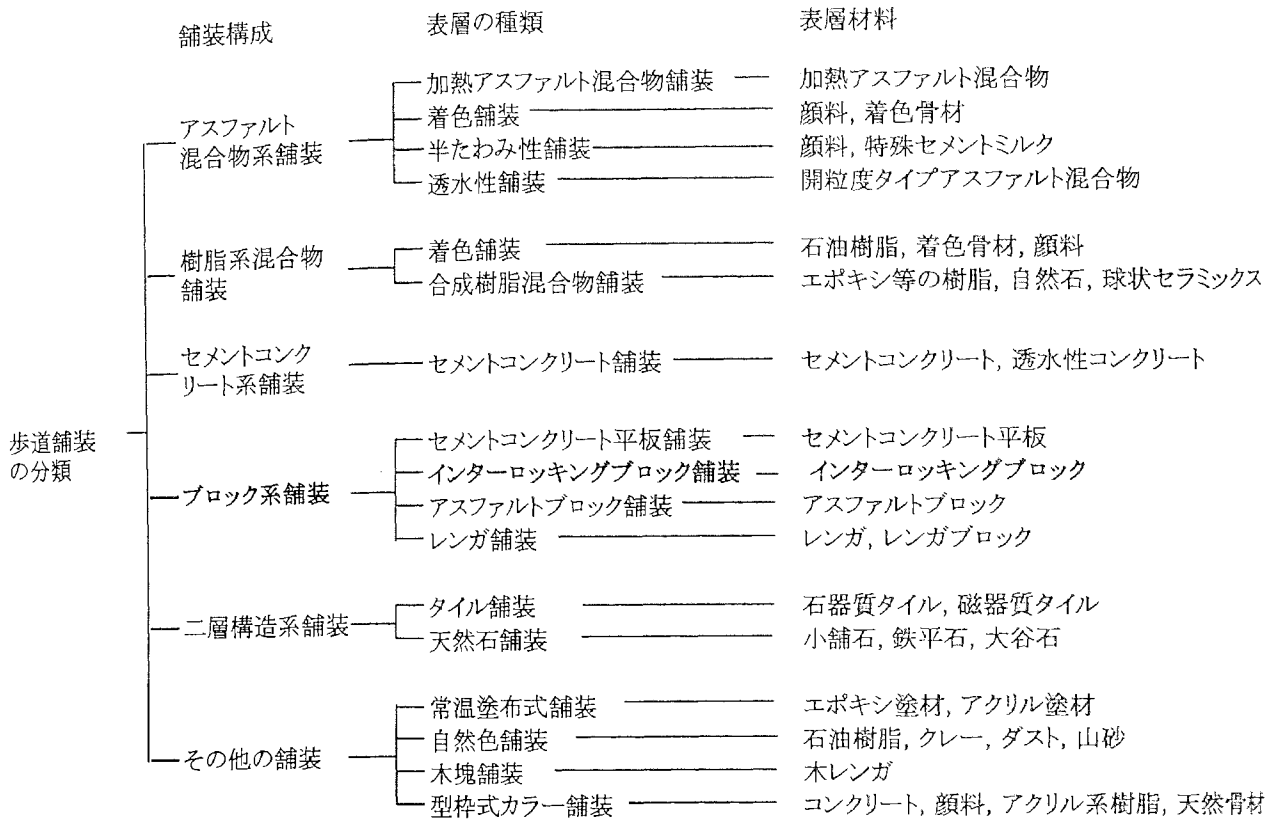 舗装構成 表層の種類 表層材料
加熱アスファルト混合物舗装 加熱アスファルト混合物
着色舗装 顔料, 着色骨材
アスファルト
混合物系舗装
半たわみ性舗装 顔料, 特殊セメントミルク
透水性舗装 開粒度タイプアスファルト混合物
樹脂系混合物
舗装
着色舗装 石油樹脂, 着色骨材, 顔料
合成樹脂混合物舗装 エポキシ等の樹脂, 自然石, 球状セラミックス
セメントコンク
リート系舗装
セメントコンクリート舗装 セメントコンクリート, 透水性コンクリート
歩道舗装
の分類
セメントコンクリート平板舗装 セメントコンクリート平板
インターロッキングブロック舗装 インターロッキングブロック
ブロック系舗装
アスファルトブロック舗装 アスファルトブロック
レンガ舗装 レンガ, レンガブロック
タイル舗装 石器質タイル, 磁器質タイル
二層構造系舗装
天然石舗装 小舗石, 鉄平石, 大谷石
常温塗布式舗装 エポキシ塗材, アクリル塗材
自然色舗装 石油樹脂, クレー, ダスト, 山砂
その他の舗装
木塊舗装 木レンガ
型枠式カラー舗装 コンクリート, 顔料, アクリル系樹脂, 天然骨材